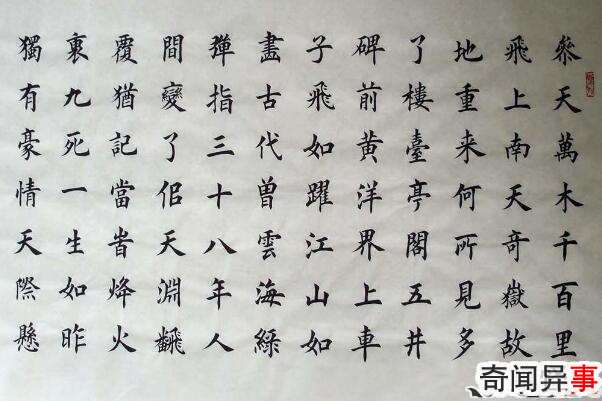 叅天萬木千百里
飛上南天奇嶽故
地重来何所見多
了樓臺亭閣五井
碑前黄洋界上車
子飛如躍江山如
畫古代曾雲海綠
彈指三十八年人
間變了佀天淵飜
覆猶記當旹烽火
裏九死一生如昨
獨有豪情天際懸
奇闻异事